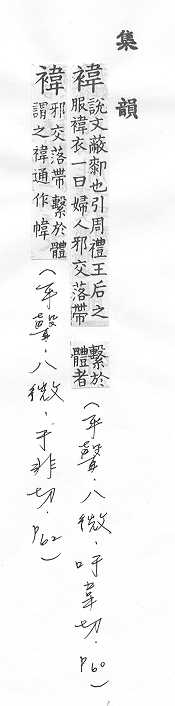 集韻
褘 說文蔽厀也引周禮王后之服褘衣一曰婦人邪交落帶繫於體者(平聲.八微.吁韋切.P60)
褘 邪交落帶繫於體謂之褘通作幃(平聲.八微.于非切.P62)